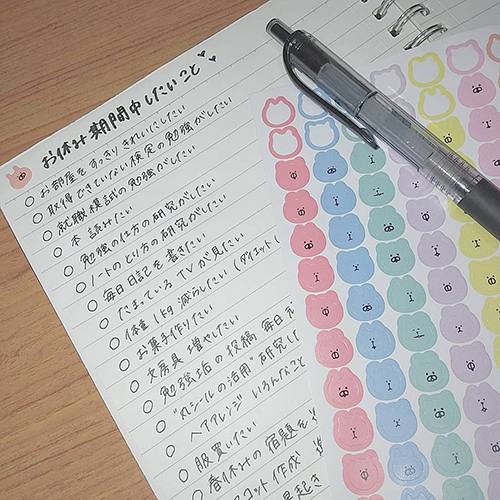 お休み期間中したいこと
○ お部屋をすっきりきれいにしたい
○ 取得できていない検定の勉強がしたい
○ 就職模試の勉強がしたい
○ 本 読みたい
○ 勉強の仕方の研究がしたい
○ ノートのとり方の研究がしたい
○ 毎日日記を書きたい
○ たまっている TVが見たい
○ 体重 1kg 減らしたい (ダイエット
○ お菓子作りたい
○ 文房具 増やしたい
○ 勉強垢の投稿 毎日
○ "丸シールの活用" 研究し
○ ヘアアレンジ いろんなこと
○ 服買いたい
○ 春休みの宿題を
コット作成
早起き